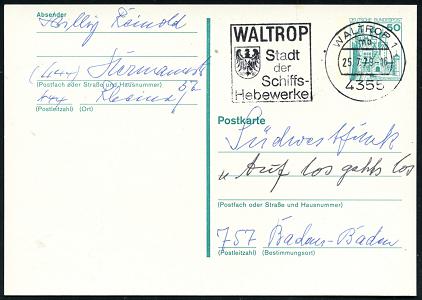 Absender
Reinold
(Postfach oder Straße und Hausnummer)
(Postleitzahl) (Ort)
WALTROP
Stadt
der
Schiffs-
Hebewerke
DEUTSCHE BUNDESPOST
50
WALTROP 1
4355
Postkarte
Südwestfunk
„Auf los gehts los
(Postfach oder Straße und Hausnummer)
757 Baden-Baden
(Postleitzahl) (Bestimmungsort)